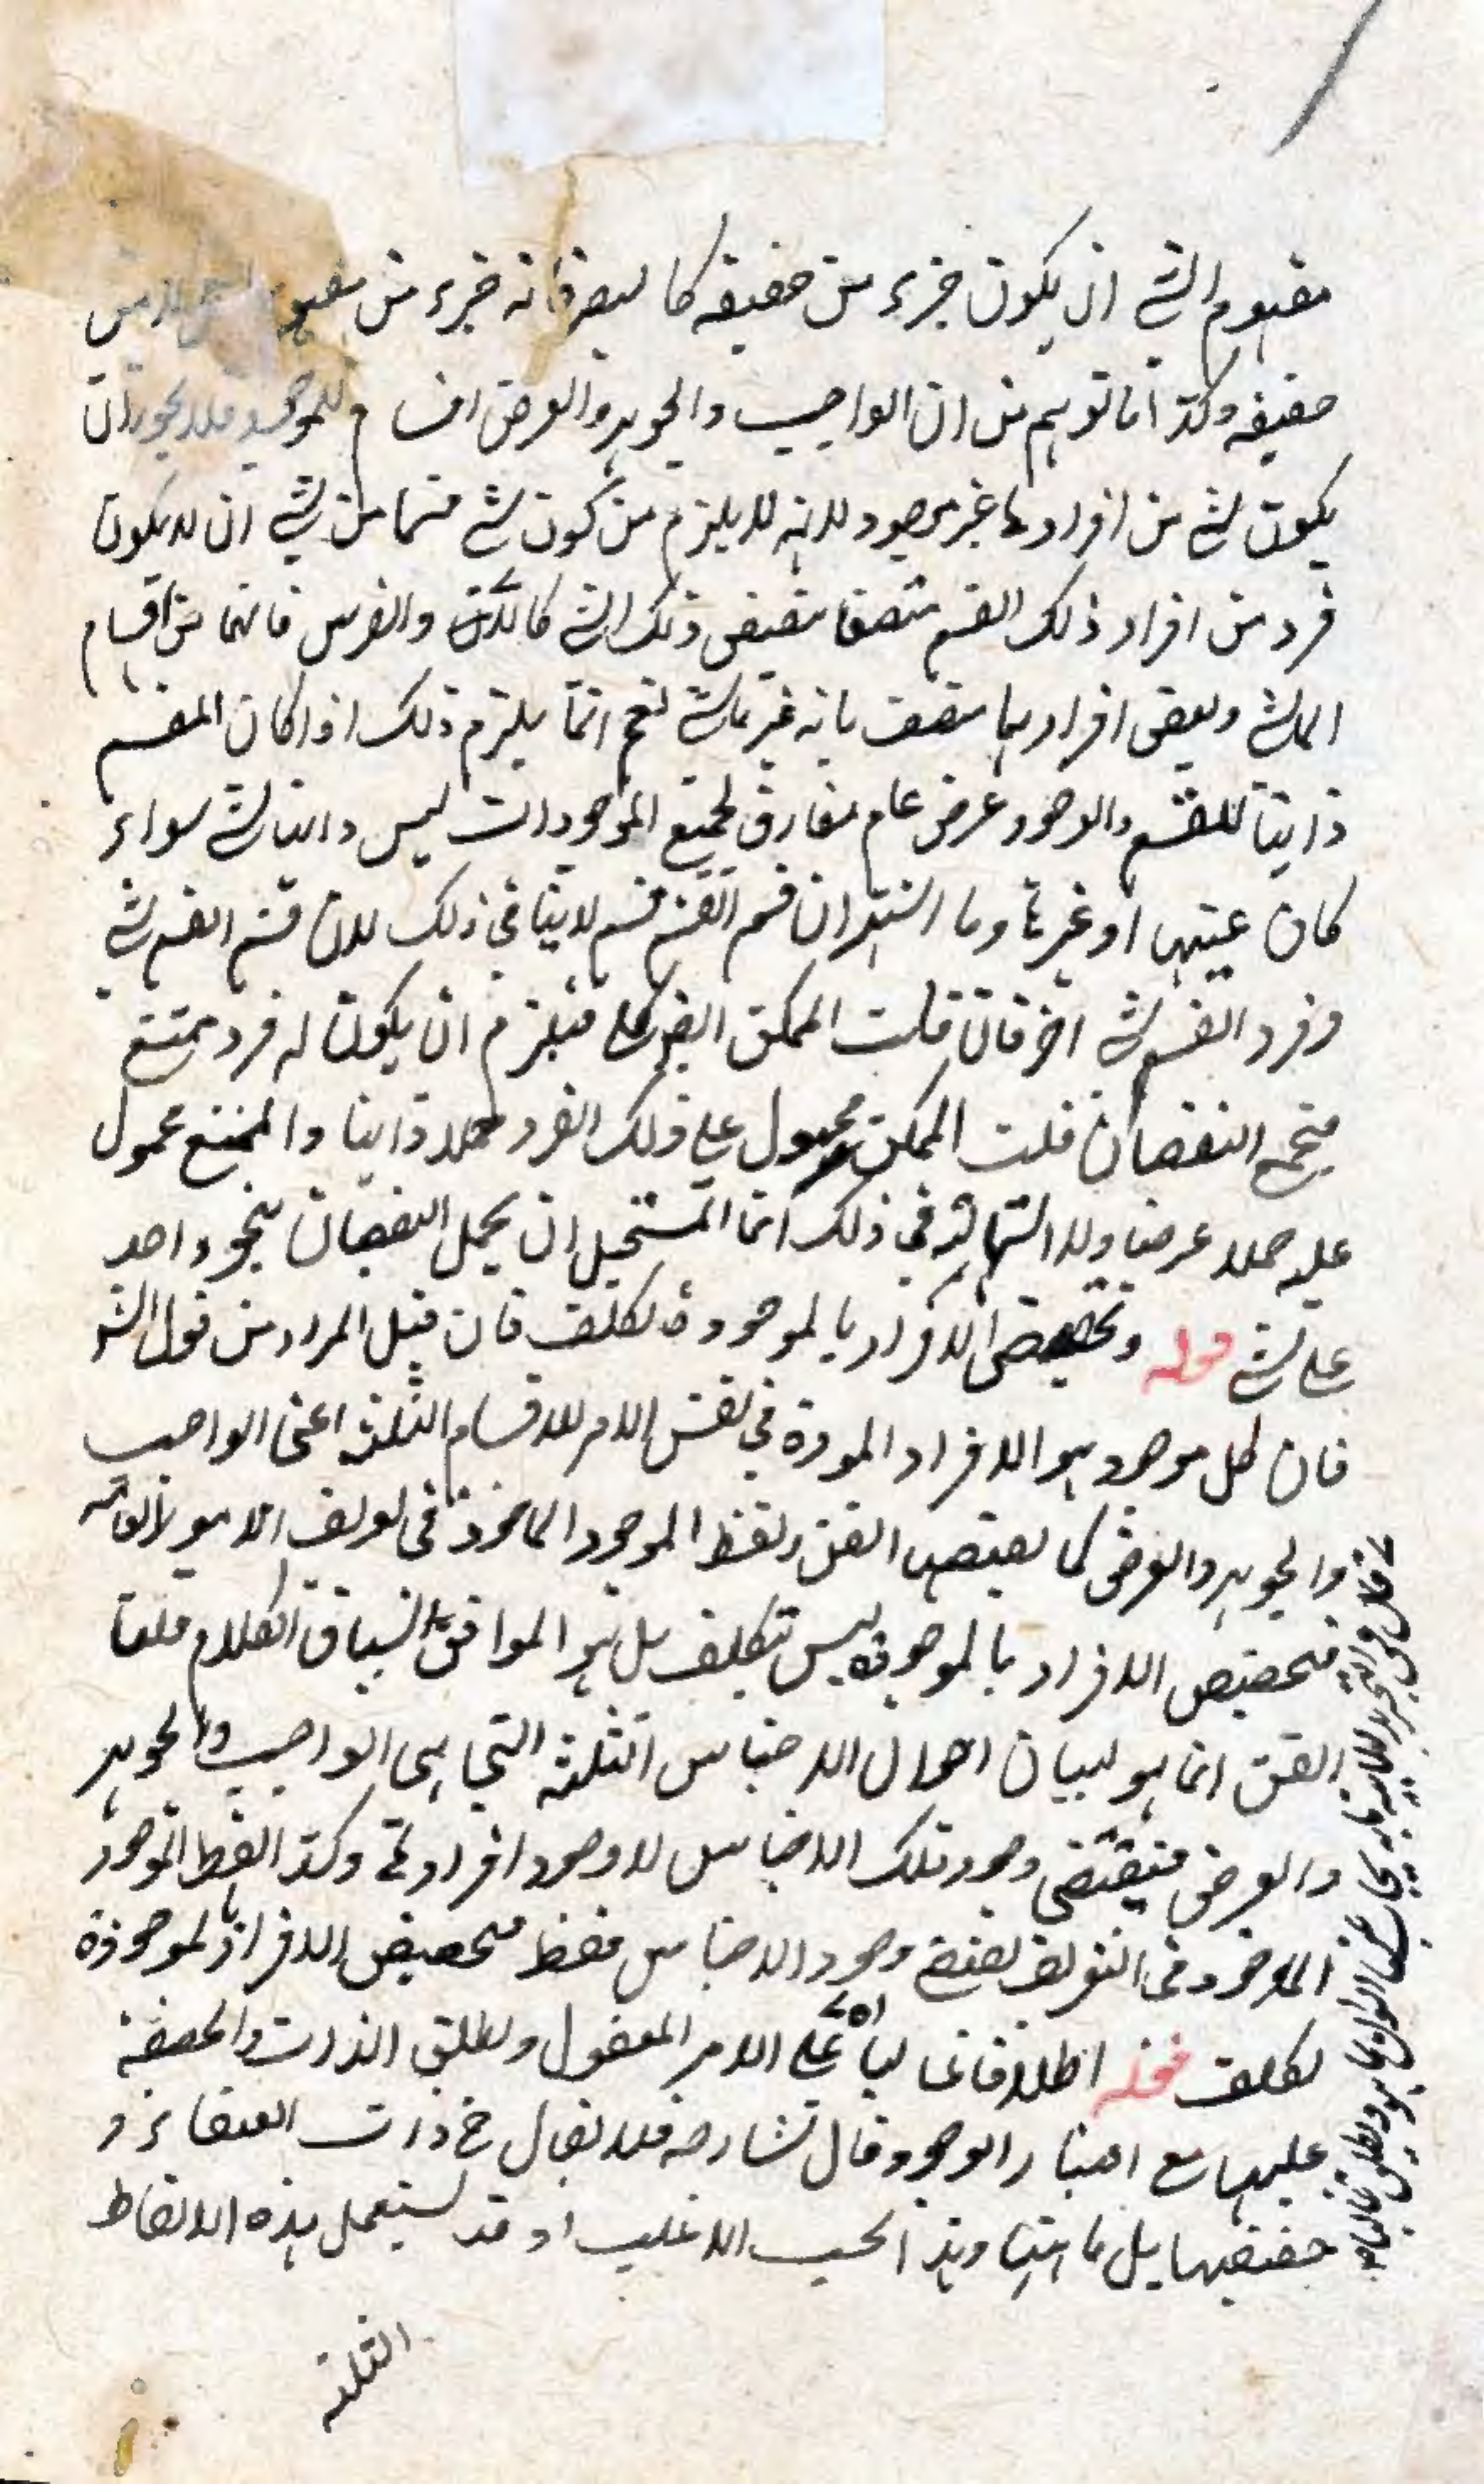 مفهوم الشئ ان يكون جزء من حقيقة كالبصر فانه جزء من مفهوم
حقيقة وكذا ما توهم من ان الواجب والجوهر والعرض اقسام للموجود فلا يجوز ان
يكون شئ من افرادها غير موجود لانه لا يلزم من كون شئ قسما من شئ ان لا يكون
فرد من افراد ذلك القسم متصفا بنقيض ذلك الشئ والفرس فانهما من اقسام
الماشى وبعض افرادهما متصف بانه غير ماش نعم انما يلزم ذلك اذا كان المقسم
ذاتيا للقسم والوجود عرض عام مفارق لجميع الموجودات ليس ذاتيا لشئ سواء
كان عينها او غيرها وما اشتهر ان قسم القسم قسم لا ينافى ذلك لان قسم القسم شئ
وفرد القسم شئ اخر فان قلت الممكن ايضا كلى فيلزم ان يكون له فرد ممتنع
فيجتمع النقيضان قلت الممكن محمول على ذلك الفرد حملا ذاتيا والممتنع محمول
عليه حملا عرضيا ولا استحالة فى ذلك انما المستحيل ان يحمل النقيضان بنحو واحد
على شئ قوله وتخصيص الافراد بالموجودة تكلف فان قيل المراد من قول الش
فان كل موجود هو الافراد الموجودة فى نفس الامر للاقسام الثلثة اعنى الواجب
والجوهر والعرض كما يقتضيه الفن ولفظ الموجود الماخوذ فى تعريف الامور العامة
فتخصيص الافراد بالموجودة ليس تكلف بل هو الموافق لسياق الكلام قلنا
الفن انما هو لبيان احوال الاجناس الثلثة التى هى الواجب والجوهر
والعرض فيقتضى وجود تلك الاجناس لا وجود افرادها وكذا لفظ الموجود
الماخوذ فى التعريف يقتضى وجود الاجناس فقط فتخصيص الافراد بالموجودة
تكلف قوله اطلاقا غالبا على الامر المعقول ويطلق الذات والحقيقة
عليها مع اعتبار الوجود قال شارحه فلا يقال ذات العنقاء و
حقيقتها بل ماهيتها وهذا بحسب الاغلب وقد يستعمل هذه الالفاظ
الثلثة